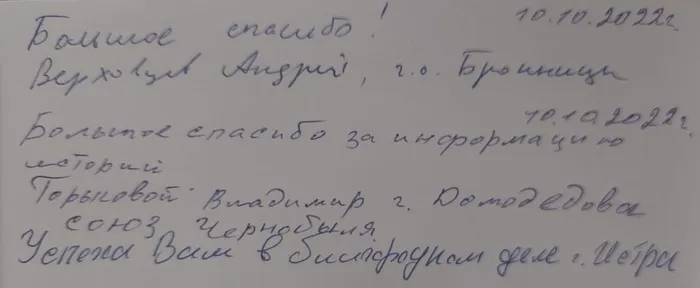 Большое спасибо! 10.10.2022г.
Верховцев Андрей, г.о. Бронницы
10.10.2022г.
Большое спасибо за информацию
истории
Торьковой Владимир г. Домодедова
союз Чернобыля
Успеха Вам в благородном деле г. Истра